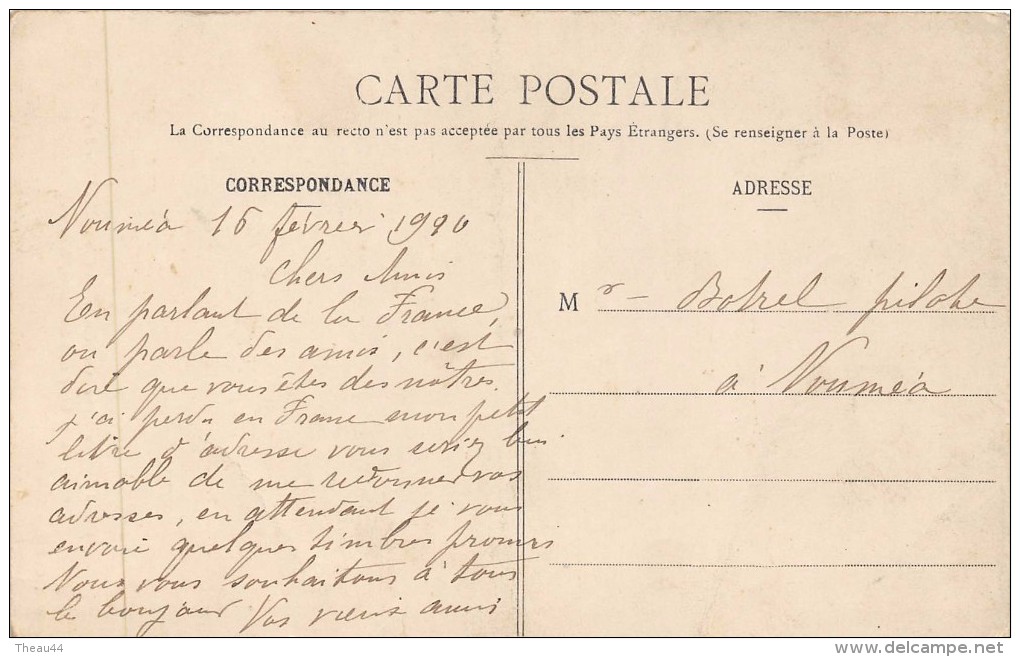 CARTE POSTALE
La Correspondance au recto n'est pas acceptée par tous les Pays Étrangers. (Se renseigner à la Poste)
CORRESPONDANCE
Nouméa 16 février
chers Amis
En parlant de la France,
on parle des amis, c'est
dire que vous êtes des nôtres.
j'ai perdu en France mon petit
livre d'adresse vous seriez bien
aimable de me redonner vos
adresses, en attendant je vous
envoie quelques timbres promis
Nous vous souhaitons à tous
le bonjour Vos vieux amis
ADRESSE
M r - Botrel pilote
à Nouméa
Theau44
delcampe.net